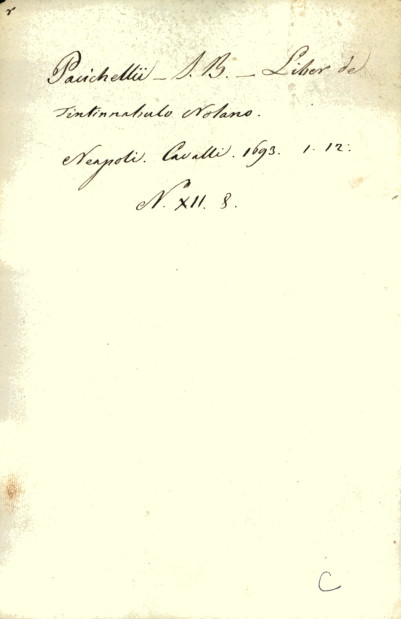 Pacichellii _ J. B. _ Liber de
Tintinnabulo Nolano.
Neapoli. Cavalli. 1693. 1. 12.
N. XII. 8.
C